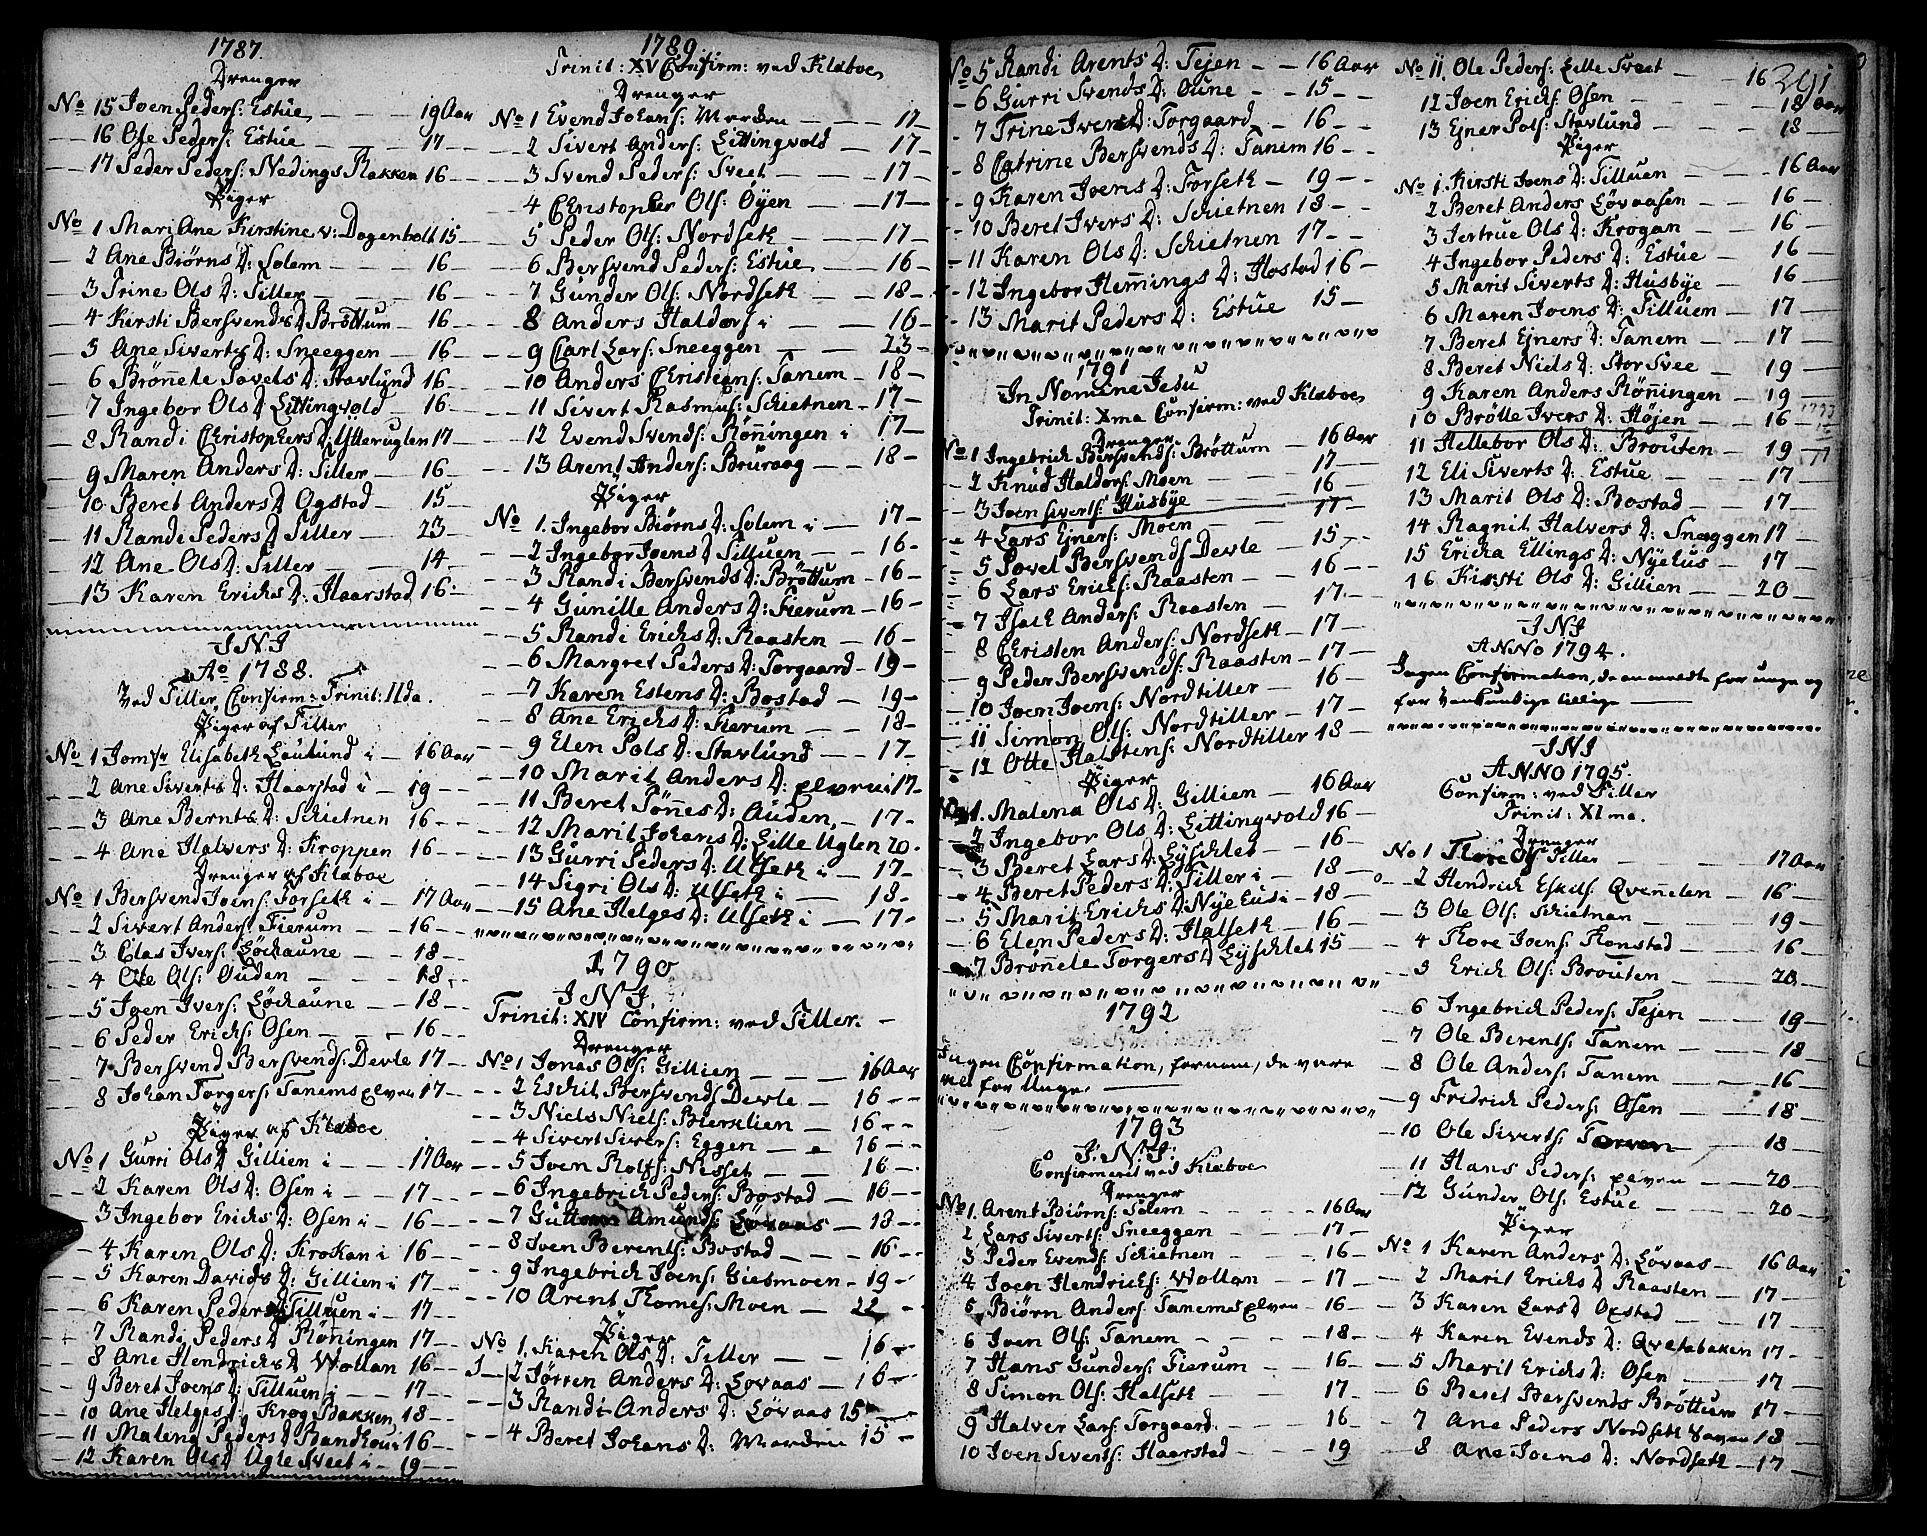 1787.
Drenger
No 15 Joen Peders: Estue — — — 19 Aar
16 Ole Peders: Estue — — — 17 —
17 Peder Peders: Nedings Rakken 16 —
Piger
No 1 Mari Ane Kirstine v: Dagenbolt 15 —
2 Ane Biørns D: Solem — — — 16 —
3 Trine Ols D: Tiller — — — 16 —
4 Kirsti Bersvends D: Brøttum — 16 —
5 Ane Siverts D: Sneeggen — 16 —
6 Brønele Povels D: Stavlund 16 —
7 Ingebor Ols D Littingvold — 16 —
8 Randi Christophers D: Ytteruglen 17 —
9 Maren Anders D: Tiller — 16 —
10 Beret Anders D Ogstad — 15 —
11 Randi Peders D Tiller — 23 —
12 Ane Ols D: Tiller — — 14 —
13 Karen Erichs D: Haarstad 16 —
I N I
Ao 1788.
Ved Tiller, Confirm: Trinit: IIda.
Piger af Tiller
No 1 Jomfr Elisabeth Laulund i — 16 Aar
2 Ane Siverts D: Haarstad i — 19 —
3 Ane Bernts D: Schietnen 16 —
4 Ane Halvers D: Kroppen 16 —
Drenger af Klæboe
No 1 Bersvend Joens: Forseth i — 17 Aar
2 Sivert Anders: Fierum — 16 —
3 Clas Ivers: Løckaune — 18 —
4 Ole Ols: Ouden — — 18 —
5 Joen Ivers: Løckaune — 18 —
6 Peder Erichs: Osen — — 16 —
7 Bersvend Bersvends: Devle 17 —
8 Johan Torgers: Tanemselven 17 —
Piger af Klæboe
No 1 Gurri Ols D Gillien i — — 17 Aar
2 Karen Ols D: Osen i — — 17 —
3 Ingebor Erichs D: Osen i — 16 —
4 Karen Ols D: Krokan i 16 —
5 Karen Davids D: Gillien i 17 —
6 Karen Peders D: Tilluen i — 17 —
7 Randi Peders D Røningen 17 —
8 Ane Hendrichs D Wollan 16 —
9 Beret Joens D: Tilluen i — 17 —
10 Ane Helges D: Krog Bakken 18 —
11 Malena Peders D Randhoui 16 —
12 Karen Ols D Ugle Sveet i — 19 —
1789.
Trinit: XV Confirm: ved Klæboe
Drenger
No 1 Evend Johans: Moeden — — — 17 —
2 Sivert Anders: Littingvold — 17 —
3 Svend Peders: Sveet — — — 17 —
4 Christopher Ols: Øyen — — 17 —
5 Peder Ols: Nordseth — — — 17 —
6 Bersvend Peders: Estue — — 16 —
7 Gunder Ols: Nordseth — — 18 —
8 Anders Haldors: i — — 16 —
9 Carl Lars: Sneeggen — — 23 —
10 Anders Christians: Tanem — 18 —
11 Sivert Rasmus: Schietnen — 17 —
12 Evend Svends: Røningen i 17 —
13 Arent Anders: Bruraag — — 18 —
Piger
No 1. Ingebor Biørns D: Solem i — 17 —
2 Ingebor Joens D: Tilluen — — 16 —
3 Randi Bersvends D: Brøttum — 16 —
4 Gunille Anders D: Fierum — 16 —
5 Randi Erichs D: Raasten — 16 —
6 Margret Peders D: Torgaard — 19 —
7 Karen Estens D: Bostad — 19 —
8 Ane Erichs D: Fierum — 18 —
9 Elen Pols D: Stavlund — 17 —
10 Marit Anders D: elven i 17 —
11 Beret Tønes D: Auden — 17 —
12 Marit Johans D: Lille Uglen 20 —
13 Gurri Peders D: Ulseth i — 17 —
14 Sigri Ols D: Ulseth i — 18 —
15 Ane Helges D: Ulseth i — 17 —
1790
I N I.
Trinit: XIV Confirm: ved Tiller. —
Drenger
No 1 Jonas Ols: Gillien — — — 16 Aar
2 Eschil Bersvends Devle — 16 —
3 Niels Niels: Bierklien — 16 —
4 Sivert Sivers: Eggen — — 16 —
5 Joen Rolfs: Nisset — — — 16 —
6 Ingebrich Peders: Bostad — 16 —
7 Amunds: Løvaas — 18 —
8 Joen Berents: Bostad — — 16 —
9 Ingebrich Joens: Giesmoen — 19 —
10 Arent Thomes: Moen — 22 —
Piger
No 1. Karen Ols D: Tiller — — 16 —
2 Jørren Anders D: Løvaas — 16 —
3 Randi Anders D: Løvaas 15 —
4 Beret Johans D: Moeden 15 —
No 5 Randi Arents D: Tejen — — 16 Aar
6 Gurri Svends D: Oune — — 15 —
7 Trine Ivers D: Torgaard — 16 —
8 Catrine Bersvends D: Tanem 16 —
9 Karen Joens D: Forseth — 19 —
10 Beret Ivers D: Schietnen 18 —
11 Karen Ols D: Schietnen 17 —
12 Ingebor Hemings D: Hostad 16 —
13 Marit Peders D: Estue 15 —
1791
In Nomine Jesu
Trinit: Xma Confirm: ved Klæboe
Drenger
No 1 Ingebrich Bersvends: Brøttum — 16 Aar
2 Knud Haldors: Moen — — 17 —
3 Joen Siverts: Husbye — — 16 —
4 Lars Ejners: Moen — — — 17 —
5 Povel Bersvends Devle — 15 —
6 Lars Erichs: Raasten — — 16 —
7 Isach Anders: Raasten — 17 —
8 Christen Anders: Nordseth — 17 —
9 Peder Bersvends: Raasten — 17 —
10 Joen Joens: Nordtiller — 16 —
11 Simon Ols: Nordtiller — 17 —
12 Otte Halstens: Nordtiller 18 —
Piger
No 1. Malena Ols D: Gillien — 16 Aar
2 Ingebor Ols D: Littingvold 16 —
3 Beret Lars D: Lysklet — 16 —
4 Beret Peders D: Tiller i — 18 —
5 Marit Erichs D: Nye Eus i — 18 —
6 Elen Peders D: Halseth — 16 —
7 Brønele Torgers D Lysklet 15 —
1792
Ingen Confirmation, fornem, de vare
al for Unge.
1793
I. N. I.
Confirmeret ved Klæboe
Drenger
No 1. Arent Biørns: Solem — — — 16 Aar
2 Lars Siverts: Sneeggen — — 17 —
3 Peder Evends: Schietnen — 16 —
4 Joen Hendrichs: Wollan — 17 —
5 Biørn Anders: Tanemselven — 16 —
6 Joen Ols: Tanem — — — 18 —
7 Hans Gunders: Fierum — — 16 —
8 Simon Ols: Halseth — — — 17 —
9 Halver Lars: Torgaard. — — 16 —
10 Joen Siverts: Haarstad — — 19
No 11. Ole Peders: Lille Sveet — — 16
291
12 Joen Erichs: Osen — — — 18 Aar
13 Ejner Pols: Stavlund — — — 18 —
Piger
No 1. Kirsti Joens D: Tilluen — — 16 Aar
2 Beret Anders Løvaasen — 16 —
3 Jertrue Ols D: Krogan — 16 —
4 Ingebor Peders D: Estue — 16
5 Marit Siverts D: Husbye — 16 —
6 Maren Joens D: Tilluem — 17 —
7 Beret Ejners D: Tanem — 17 —
8 Beret Niels D: Stor Svee — 19 —
9 Karen Anders Røningen — 19 —
10 Brølle Ivers D: Højen — — 16 —
11 Hellebor Ols D: Brøuten — 19 —
12 Eli Siverts D: Estue — — 17 —
13 Marit Ols D: Bostad — — 17 —
14 Ragnil Halvers D: Snæggen 17 —
15 Ericka Ellings D: Nye Eus — 17 —
16 Kirsti Ols D: Gillien — — 20 —
I N I
ANNO 1794.
Ingen Confirmation, de anmeldte for unge og
for Vankundige tillige —
I N I
ANNO 1795.
Confirm: ved Tiller
Trinit: XI ma.
Drenger
No 1 Thore Ols: Tiller — — — 17 Aar
2 Hendrich Eskils: Qvenelen — 16 —
3 Ole Ols: Schietnan — — — 19 —
4 Thore Joens: Thonstad — — 16 —
5 Erich Ols: Brøuten — — — 20 —
6 Ingebrich Peders: Tejen — — 19 —
7 Ole Berents: Tanem — — — 18 —
8 Ole Anders: Tanem — — — 16 —
9 Fridrich Peders: Osen — — 18 —
10 Ole Siverts: — — 18 —
11 Hans Peders: elven — — 20 —
12 Gunder Ols: Estue — — — 20 —
Piger
No 1 Karen Anders D: Løvaas — 16 Aar
2 Marit Erichs D Raasten — 17 —
3 Karen Lars D Oxstad — — 17 —
4 Karen Evends D: Qvetabaken 17 —
5 Marit Erichs D: Osen — — 17 —
6 Beret Bersvends Brøttum 17 —
7 Ane Peders Nordseth 18 —
8 Ane Joens D: Nordseth — 17 —